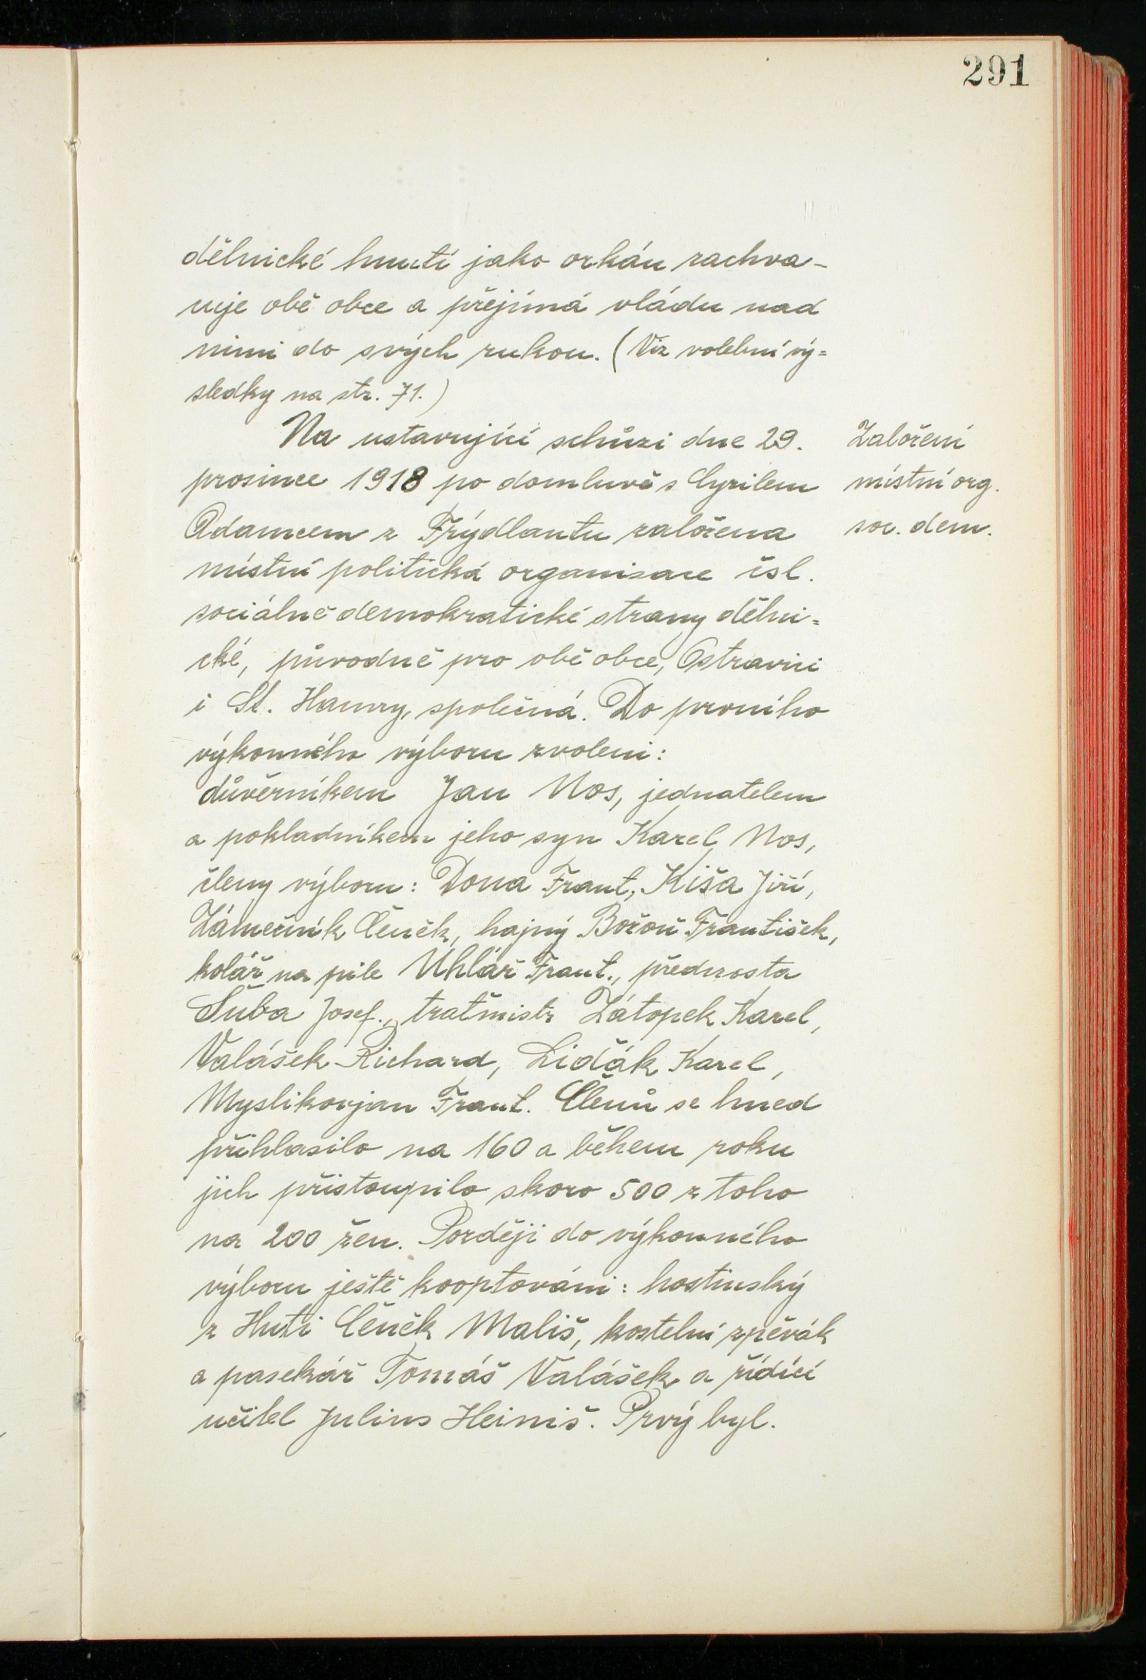 291
dělnické hnutí jako orkán zachva-
cuje obě obce a přejímá vládu nad
nimi do svých rukou. (Viz volební vý=
sledky na str. 71.)
Na ustavující schůzi dne 29.
prosince 1918 po domluvě s Cyrilem
Adamcem z Frýdlantu založena
místní politická organisace čsl.
sociálně demokratické strany dělni=
cké, původně pro obě obce, Ostravici
i St. Hamry, společná. Do prvního
výkonného výboru zvoleni:
důvěrníkem Jan Nos, jednatelem
a pokladníkem jeho syn Karel Nos,
členy výboru: Dona Frant., Kiša Jiří,
Zámečník Čeněk, hajný Božoň František,
kolář na pile Uhlář Frant., přednosta
Šuba Josef., traťmistr Zátopek Karel,
Valášek Richard, Lidčák Karel,
Myslikovjan Frant. Členů se hned
přihlasilo na 160 a během roku
jich přistoupilo skoro 500 z toho
na 200 žen. Později do výkonného
výboru ještě kooptováni: hostinský
z Huti Čeněk Mališ, kostelní zpěvák
a pasekář Tomáš Valášek a řídící
učitel Julius Heiniš. Prvý byl.
Založení
místní org.
soc. dem.